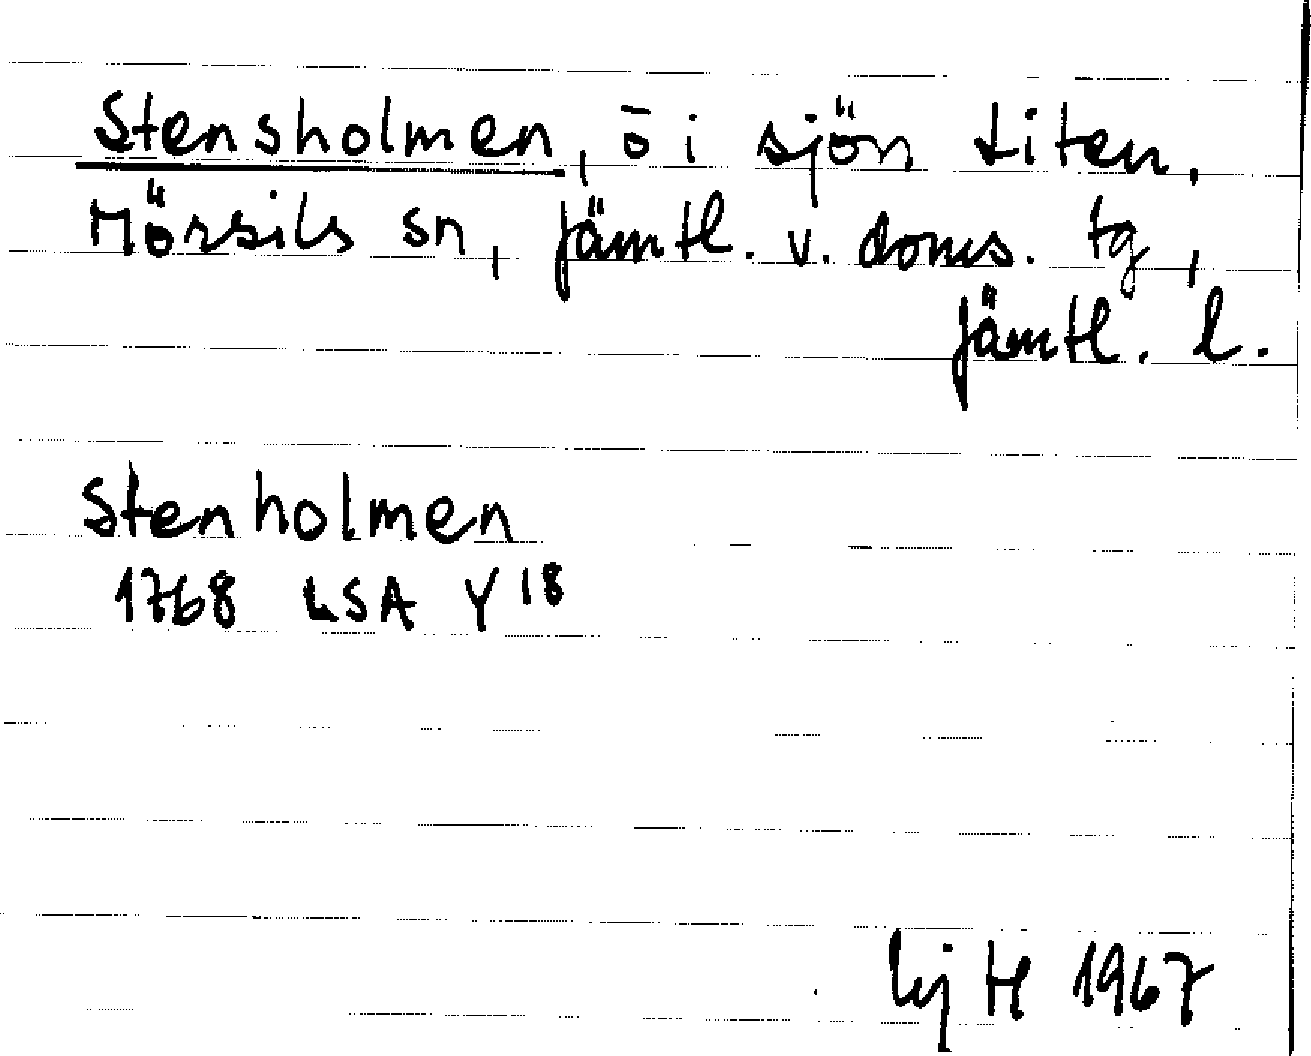 Stensholmen, ö i sjön Liten,
Mörsils sn, Jämtl. v. doms. tg,
Jämtl. l.
Stenholmen
1768 LSA Y 18
1967